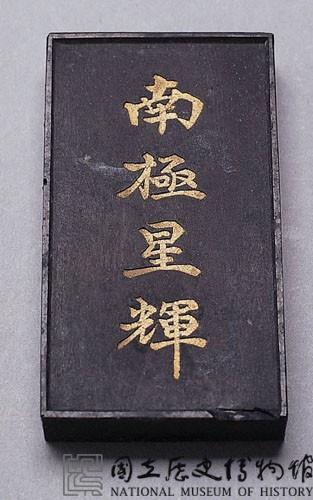 南極星輝
國立歷史博物館
NATIONAL MUSEUM OF HISTORY